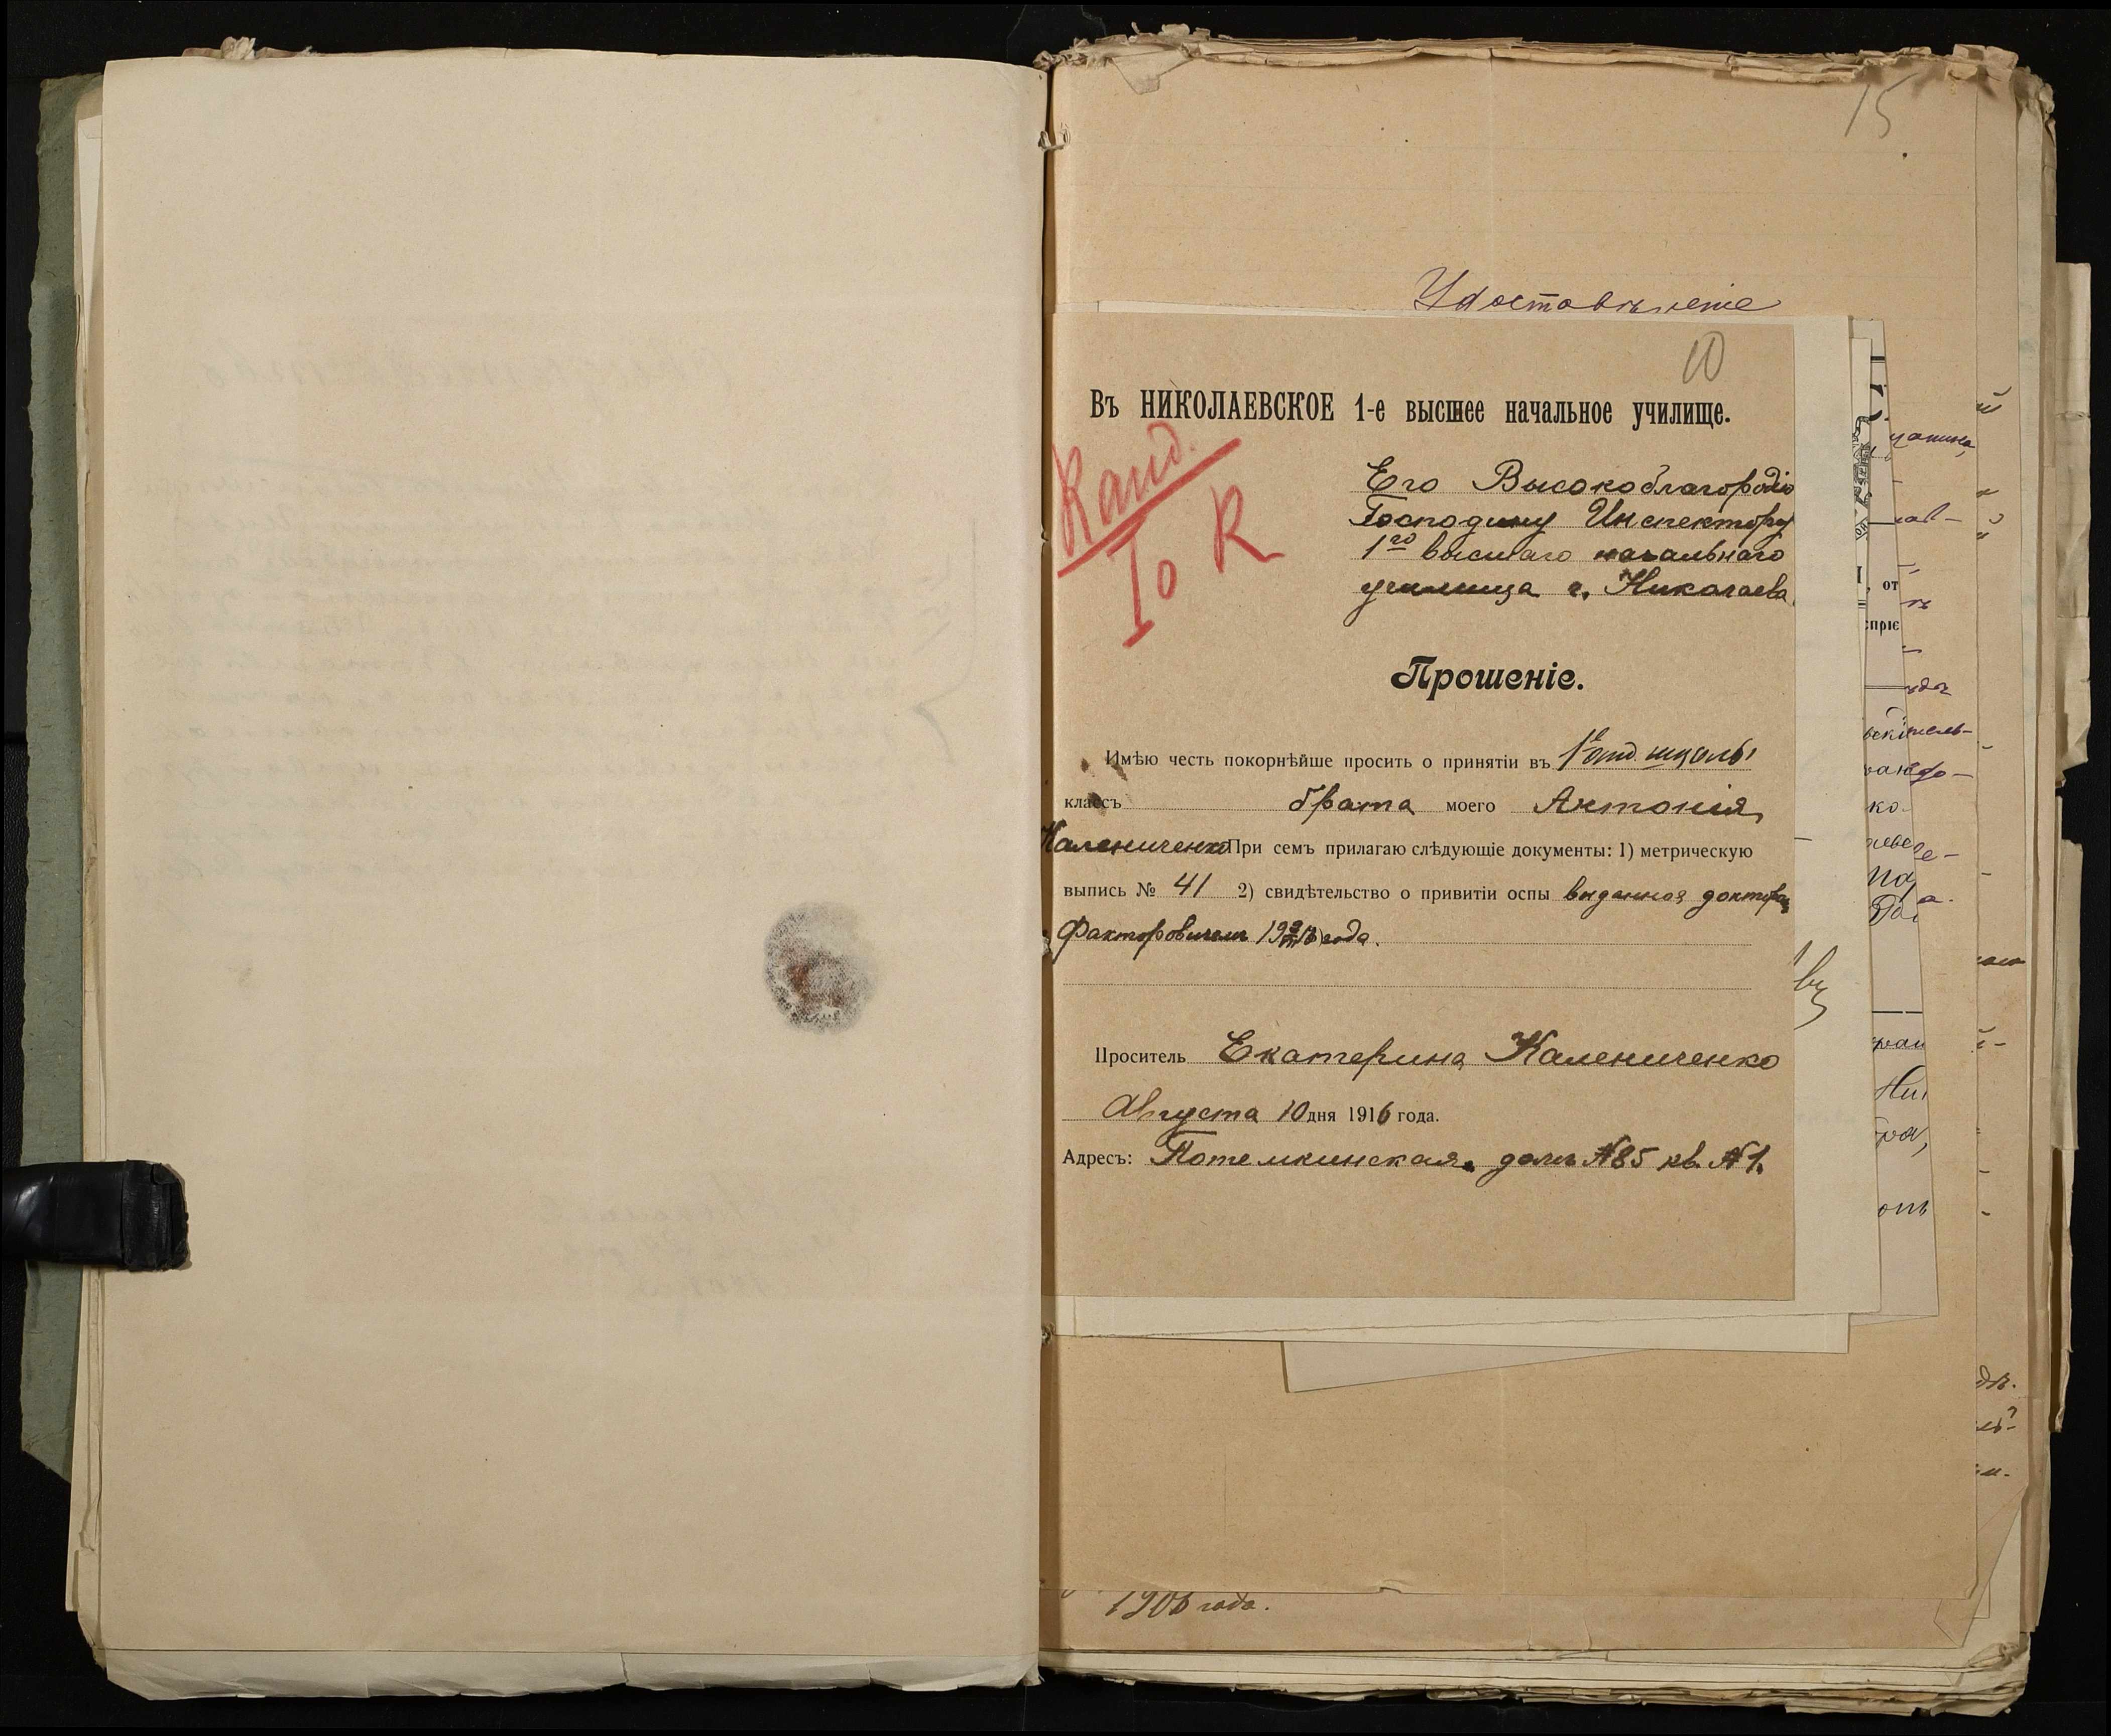 15
Удостовѣреніе
10
Въ НИКОЛАЕВСКОЕ 1-е высшее начальное училище.
Канд.
Io К
Его Высокоблагородію
Господину Инспектору
1го высшаго начальнаго
училища г. Николаева.
Прошеніе.
Имѣю честь покорнѣйше просить о принятіи въ 1е отд. школы
классъ брата моего Антонія
Калениченко При семъ прилагаю слѣдующіе документы: 1) метрическую
выпись № 41 2) свидѣтельство о привитіи оспы выданное докторомъ
Факторовичемъ года.
Проситель Екатерина Калениченко
Августа 10 дня 1916 года.
Адресъ: Потемкинская, домъ № 85 кв. № 1.
года.